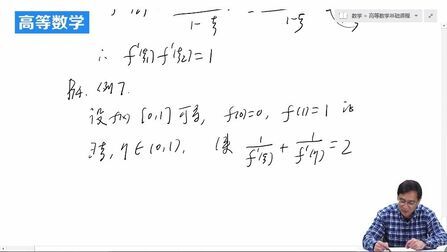 高等数学
数学 > 高等数学基础课程
f'(ξ) 1-ξ 1-ξ
∴ f'(ξ₁) f'(ξ₂) = 1
例7.
设f(x) [0,1] 可导, f(0)=0, f(1)=1 证
∃ξ, η∈(0,1), 使 1/f'(ξ) + 1/f'(η) = 2